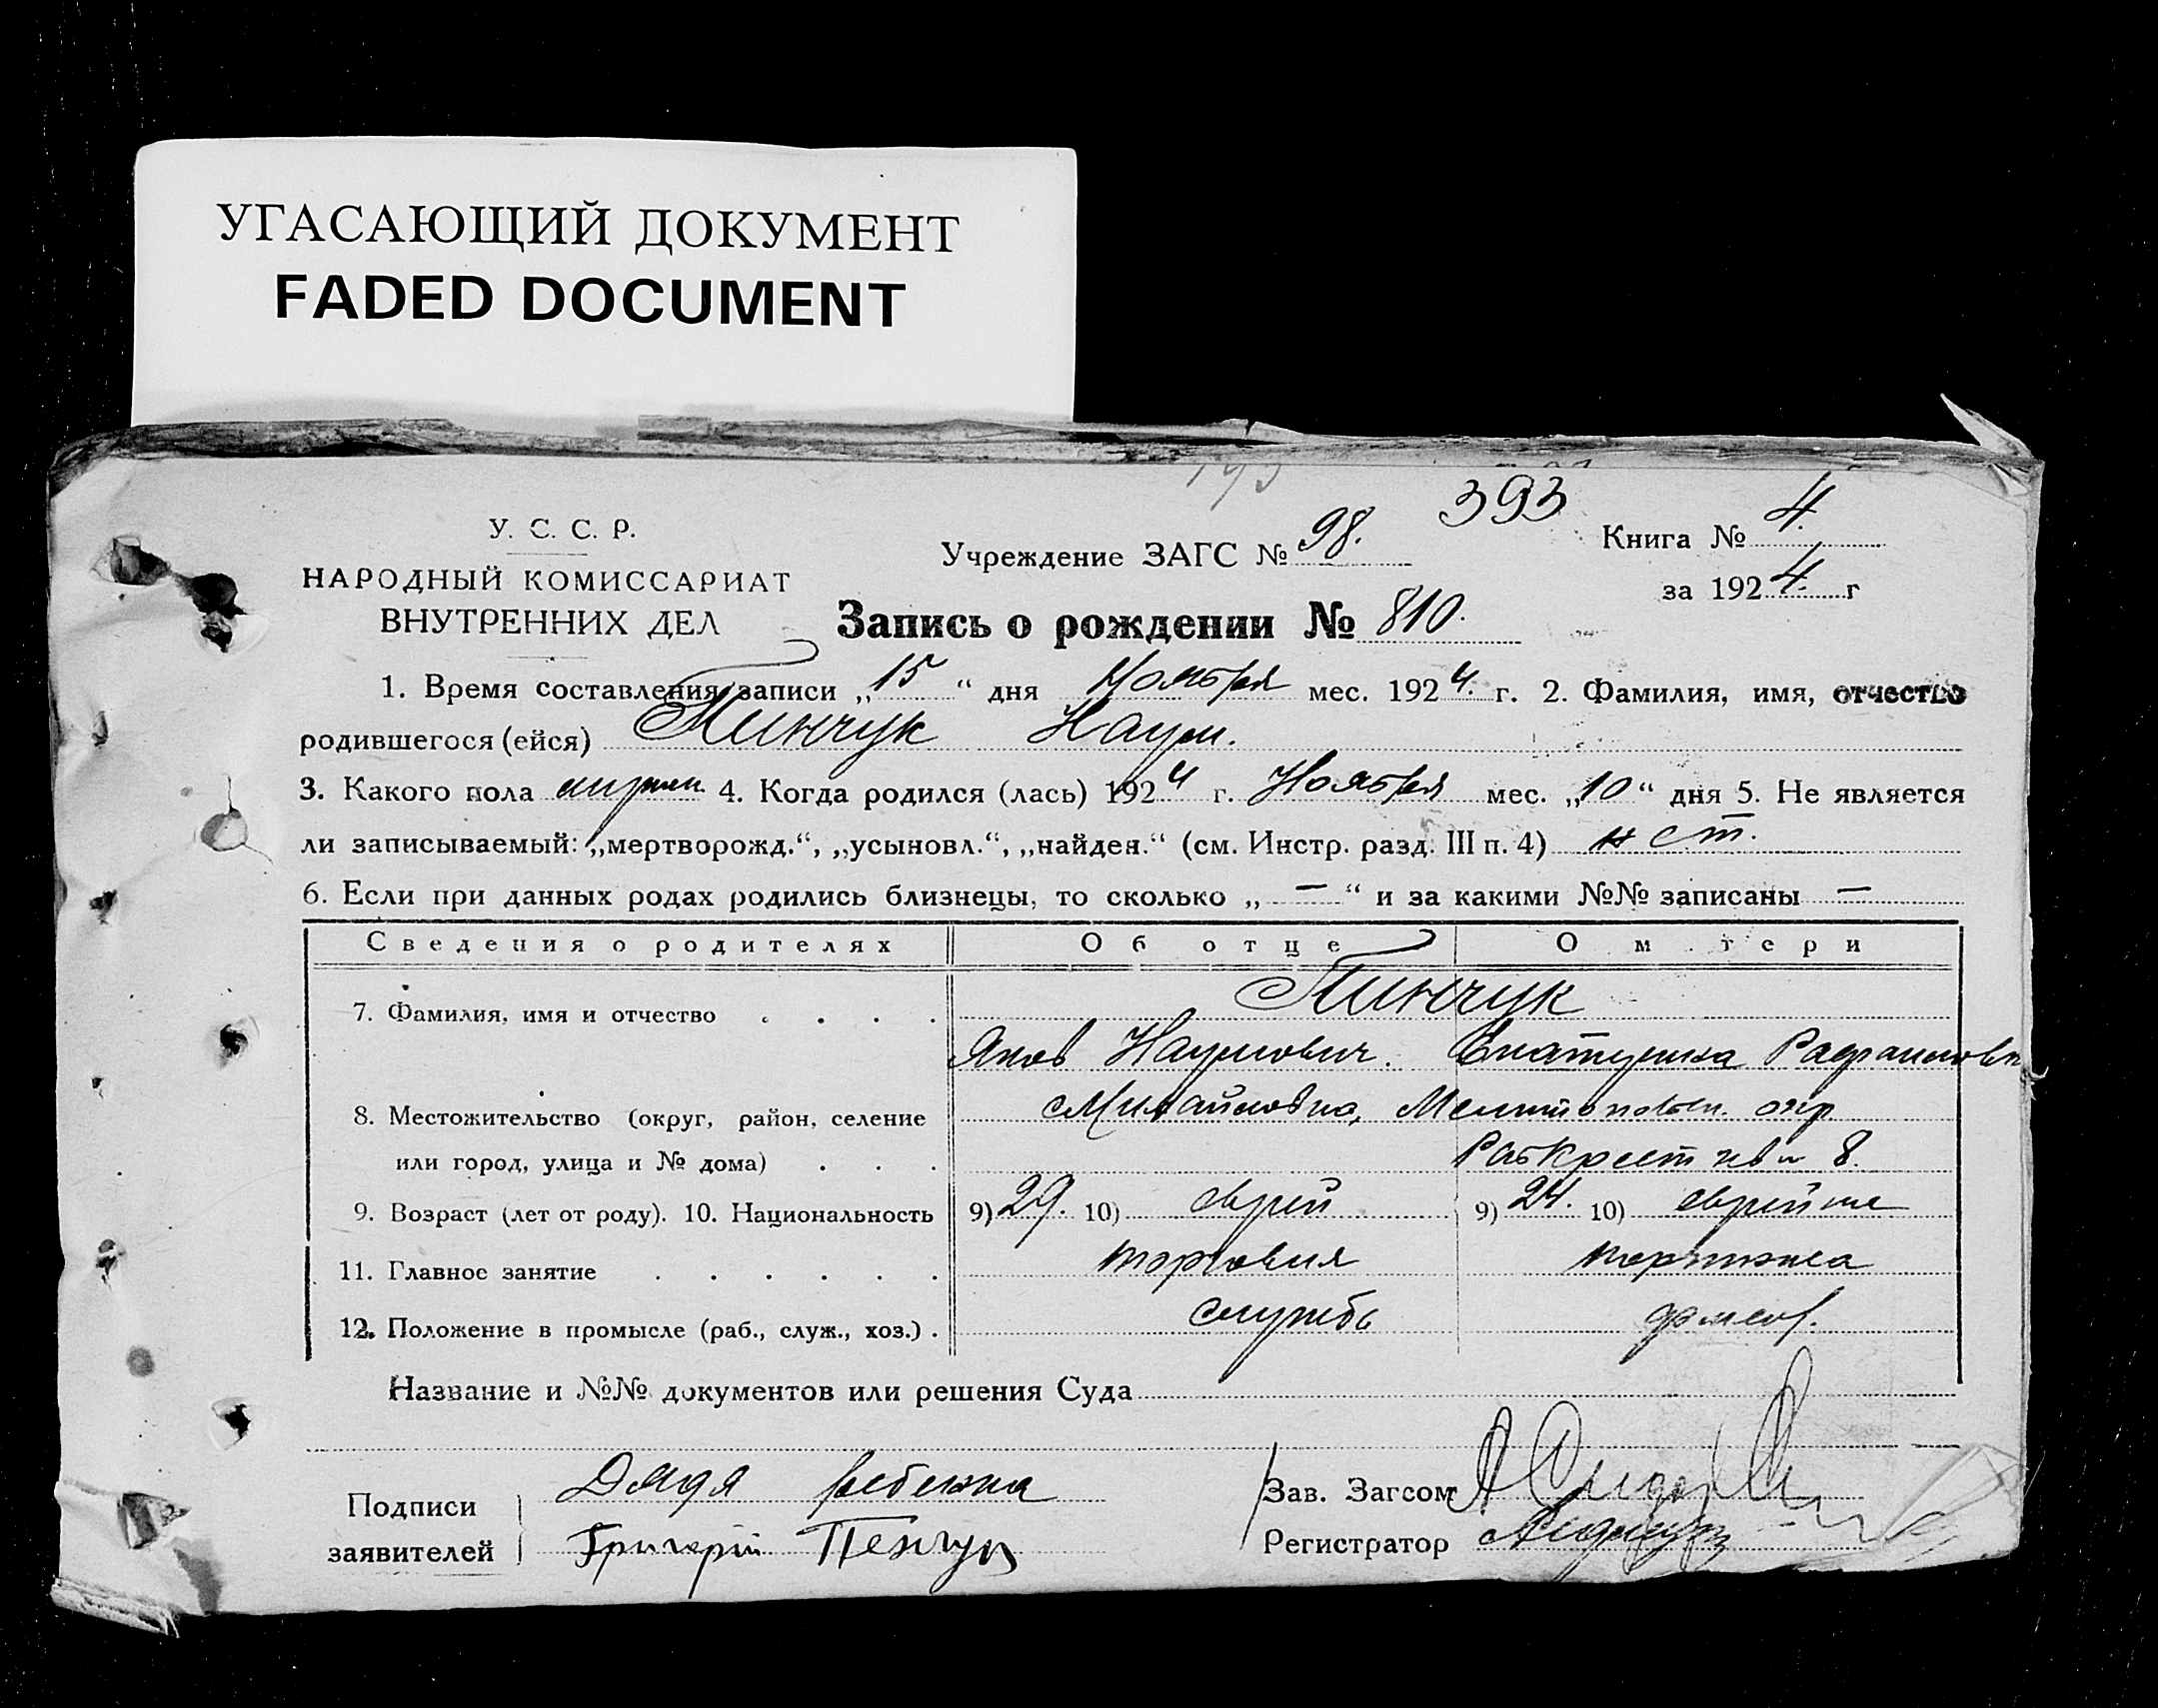 УГАСАЮЩИЙ ДОКУМЕНТ
FADED DOCUMENT
393
У. С. С. Р.
НАРОДНЫЙ КОМИССАРИАТ
ВНУТРЕННИХ ДЕЛ
Учреждение ЗАГС № 98.
Книга № 4.
за 1924. г
Запись о рождении № 810.
1. Время составления записи „15“ дня Ноября мес. 1924. г. 2. Фамилия, имя, отчество
родившегося (ейся) Пинчук Наум.
3. Какого пола мужск. 4. Когда родился (лась) 1924 г. Ноября мес. „10“ дня 5. Не является
ли записываемый: „мертворожд.“, „усыновл.“, „найден.“ (см. Инстр. разд. III п. 4) нет.
6. Если при данных родах родились близнецы, то сколько „—“ и за какими №№ записаны —
Сведения о родителях Об отце О м тери
7. Фамилия, имя и отчество . . . . Пинчук
Яков Наумович. Екатерина
8. Местожительство (округ, район, селение Михайловка, Мелитопольск. окр
или город, улица и № дома) . . . 8.
9. Возраст (лет от роду). 10. Национальность 9) 29. 10) еврей 9) 24. 10) еврейка
11. Главное занятие . . . . . . торговля
12. Положение в промысле (раб., служ., хоз.) .
Название и №№ документов или решения Суда
Подписи заявителей
Дядя ребенка
Григорій Пенчук
Зав. Загсом
Регистратор